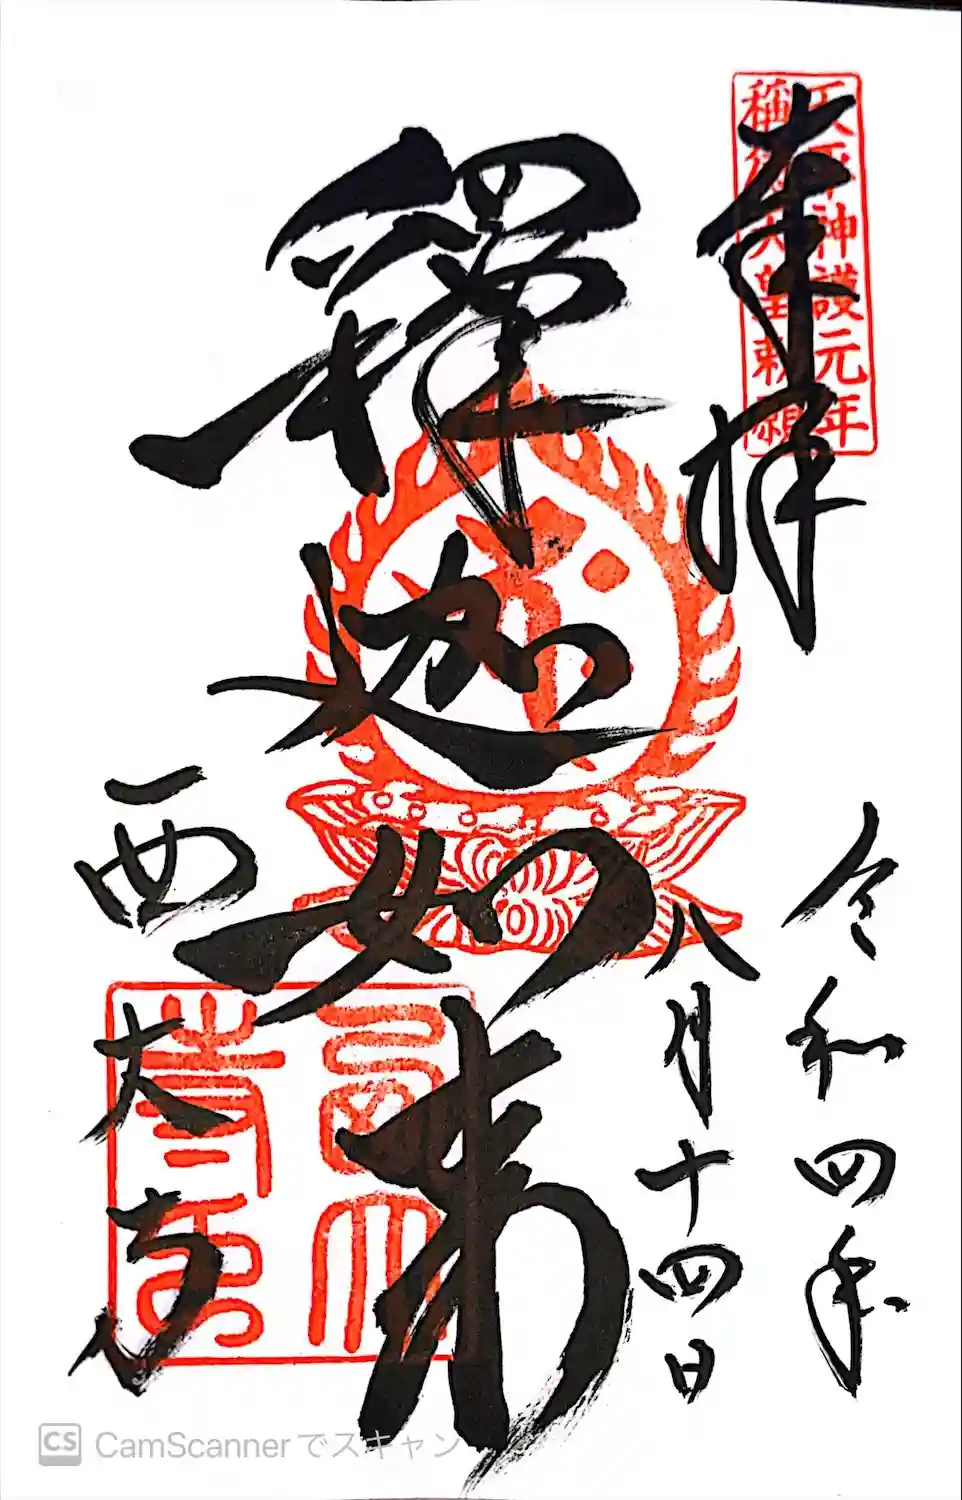 奉拝
天平神護元年
稱徳天皇勅願
令和四年
八月十四日
釋迦如来
西大寺
CS CamScannerでスキャン